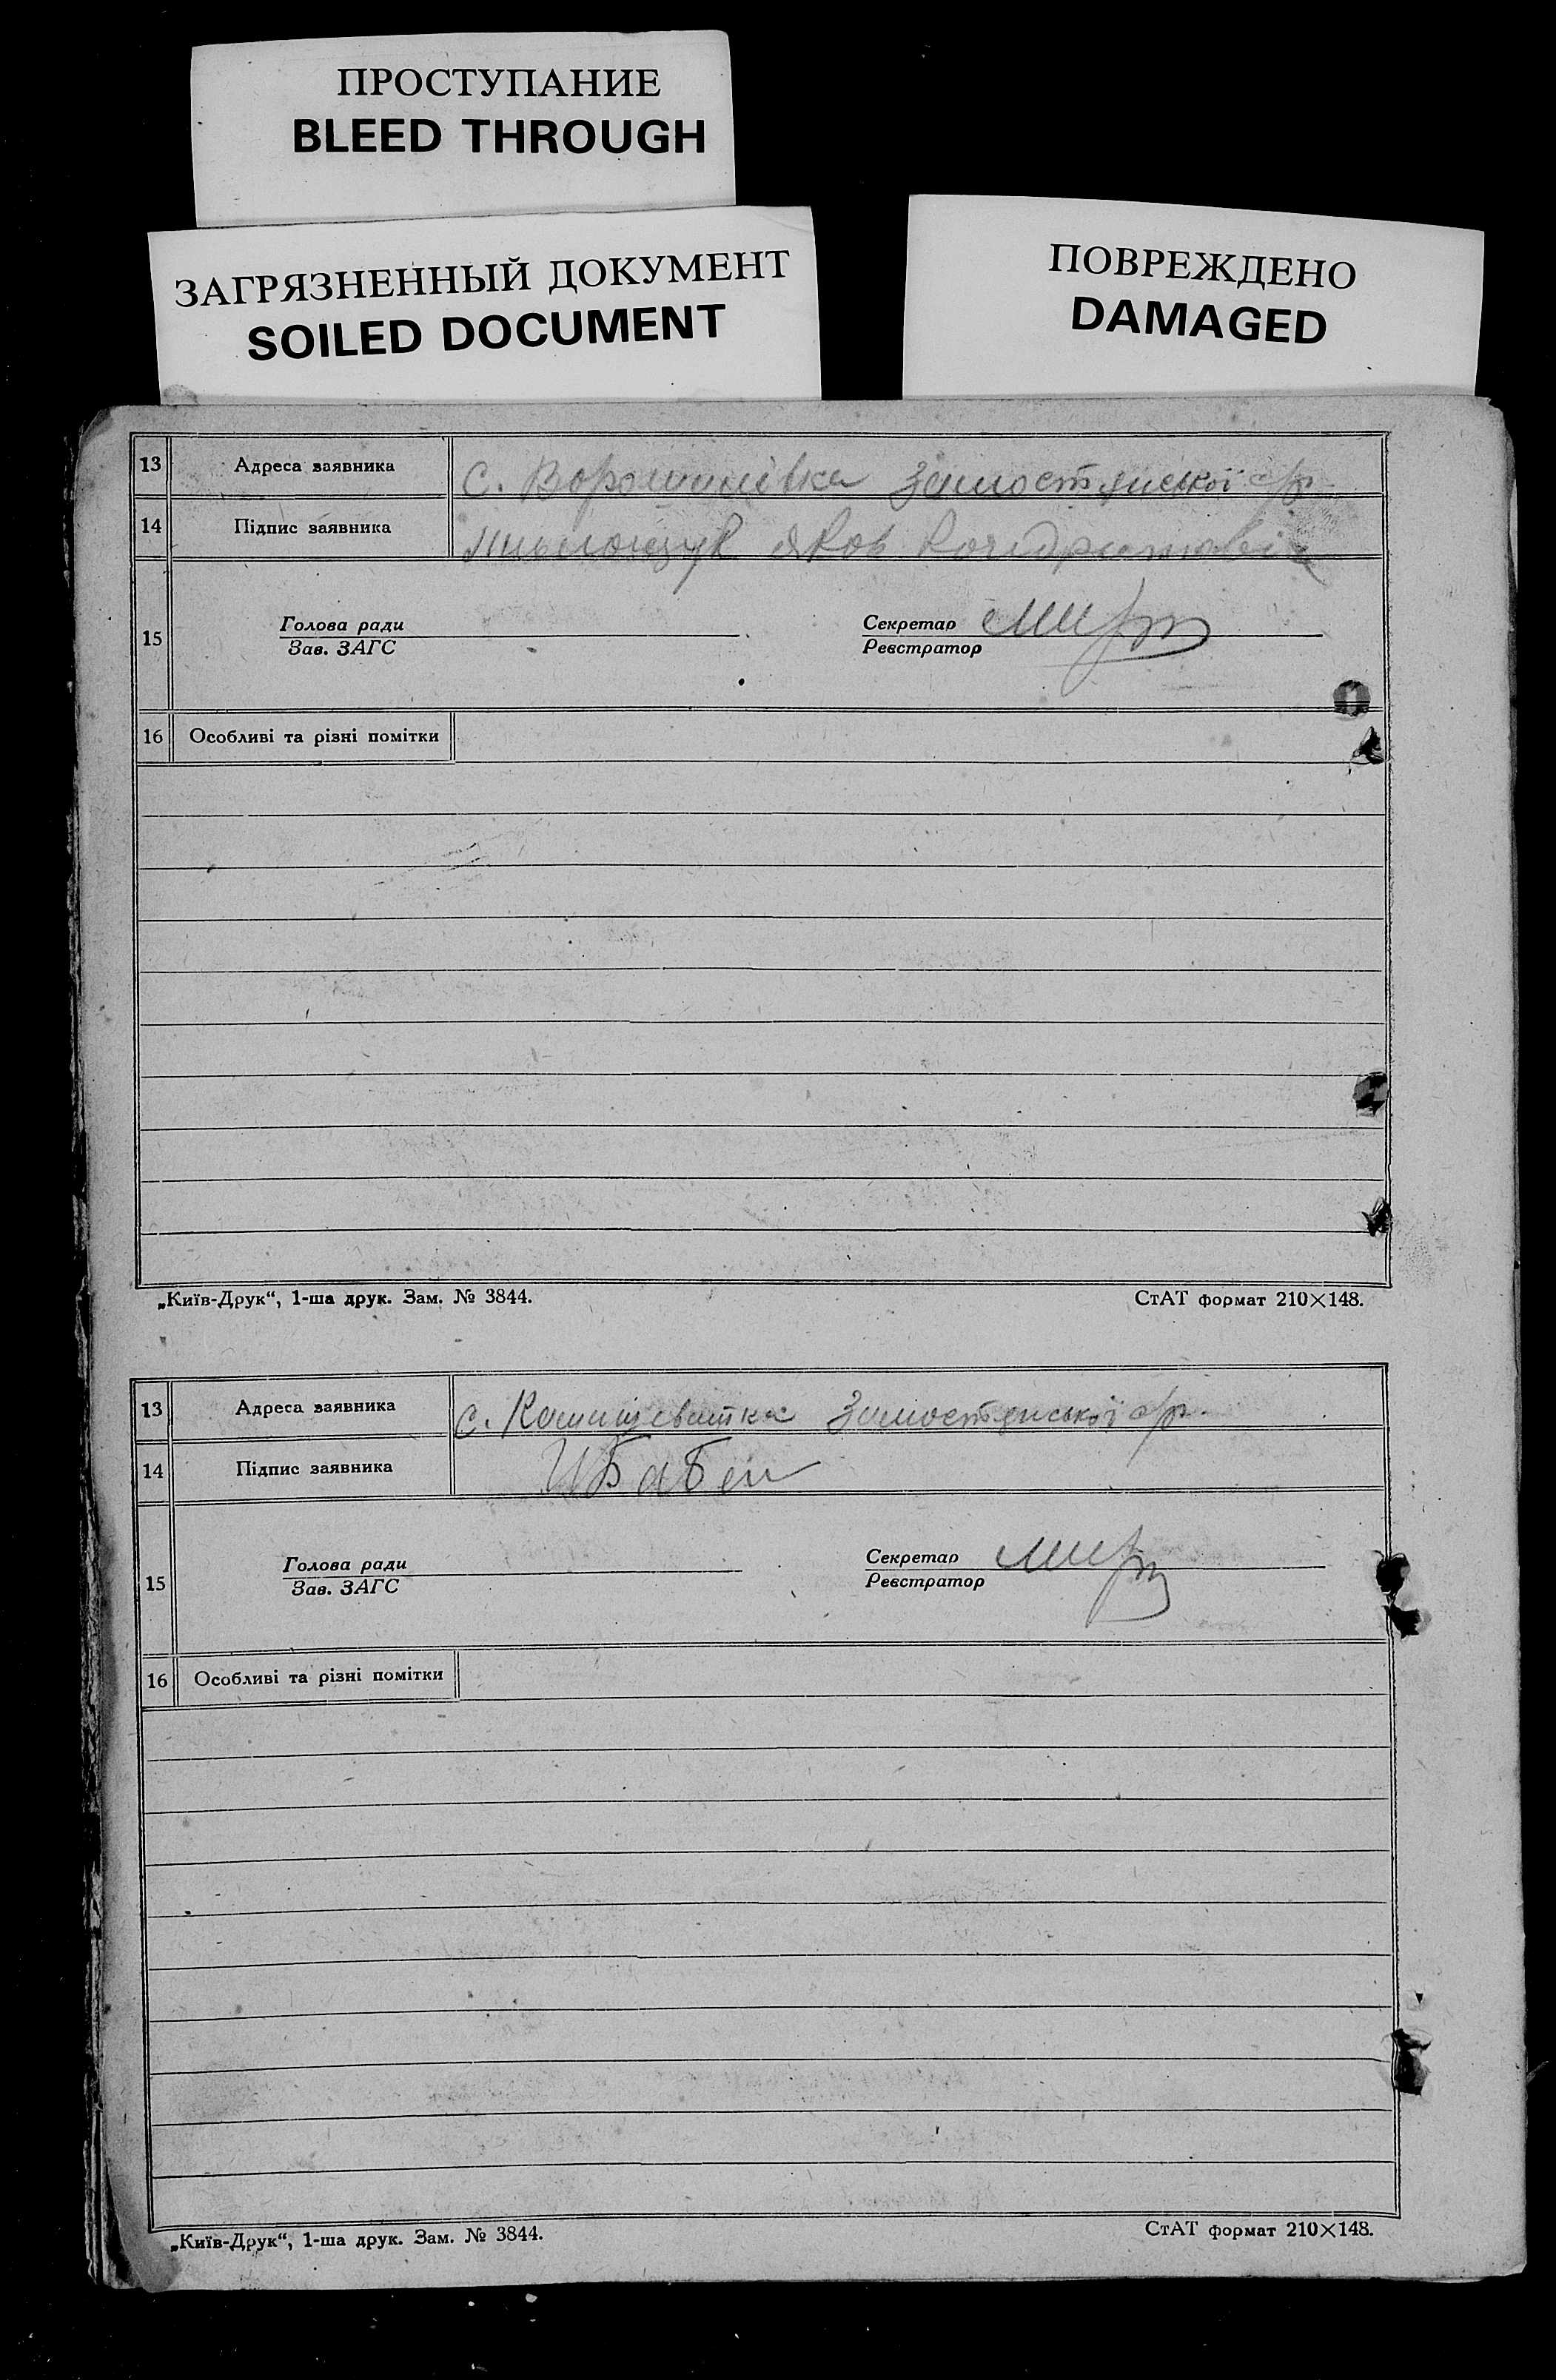 ПРОСТУПАНИЕ
BLEED THROUGH
ЗАГРЯЗНЕННЫЙ ДОКУМЕНТ
SOILED DOCUMENT
ПОВРЕЖДЕНО
DAMAGED
13 Адреса заявника с. Ворошилівка Замостянської с/р.
14 Підпис заявника Яков
15 Голова ради Секретар
Зав. ЗАГС Реєстратор
16 Особливі та різні помітки
„Київ-Друк“, 1-ша друк. Зам. № 3844. СтАТ формат 210×148.
13 Адреса заявника с. Замостянської с/р.
14 Підпис заявника
15 Голова ради Секретар
Зав. ЗАГС Реєстратор
16 Особливі та різні помітки
„Київ-Друк“, 1-ша друк. Зам. № 3844. СтАТ формат 210×148.